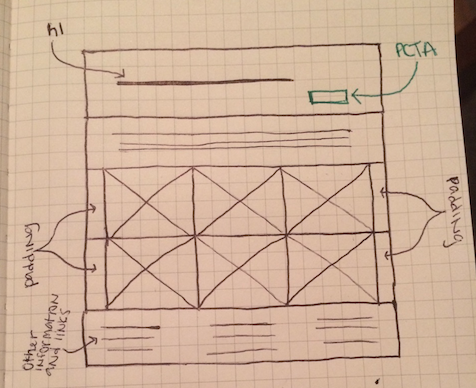 h1
PCTA
padding
padding
Other
information
and links